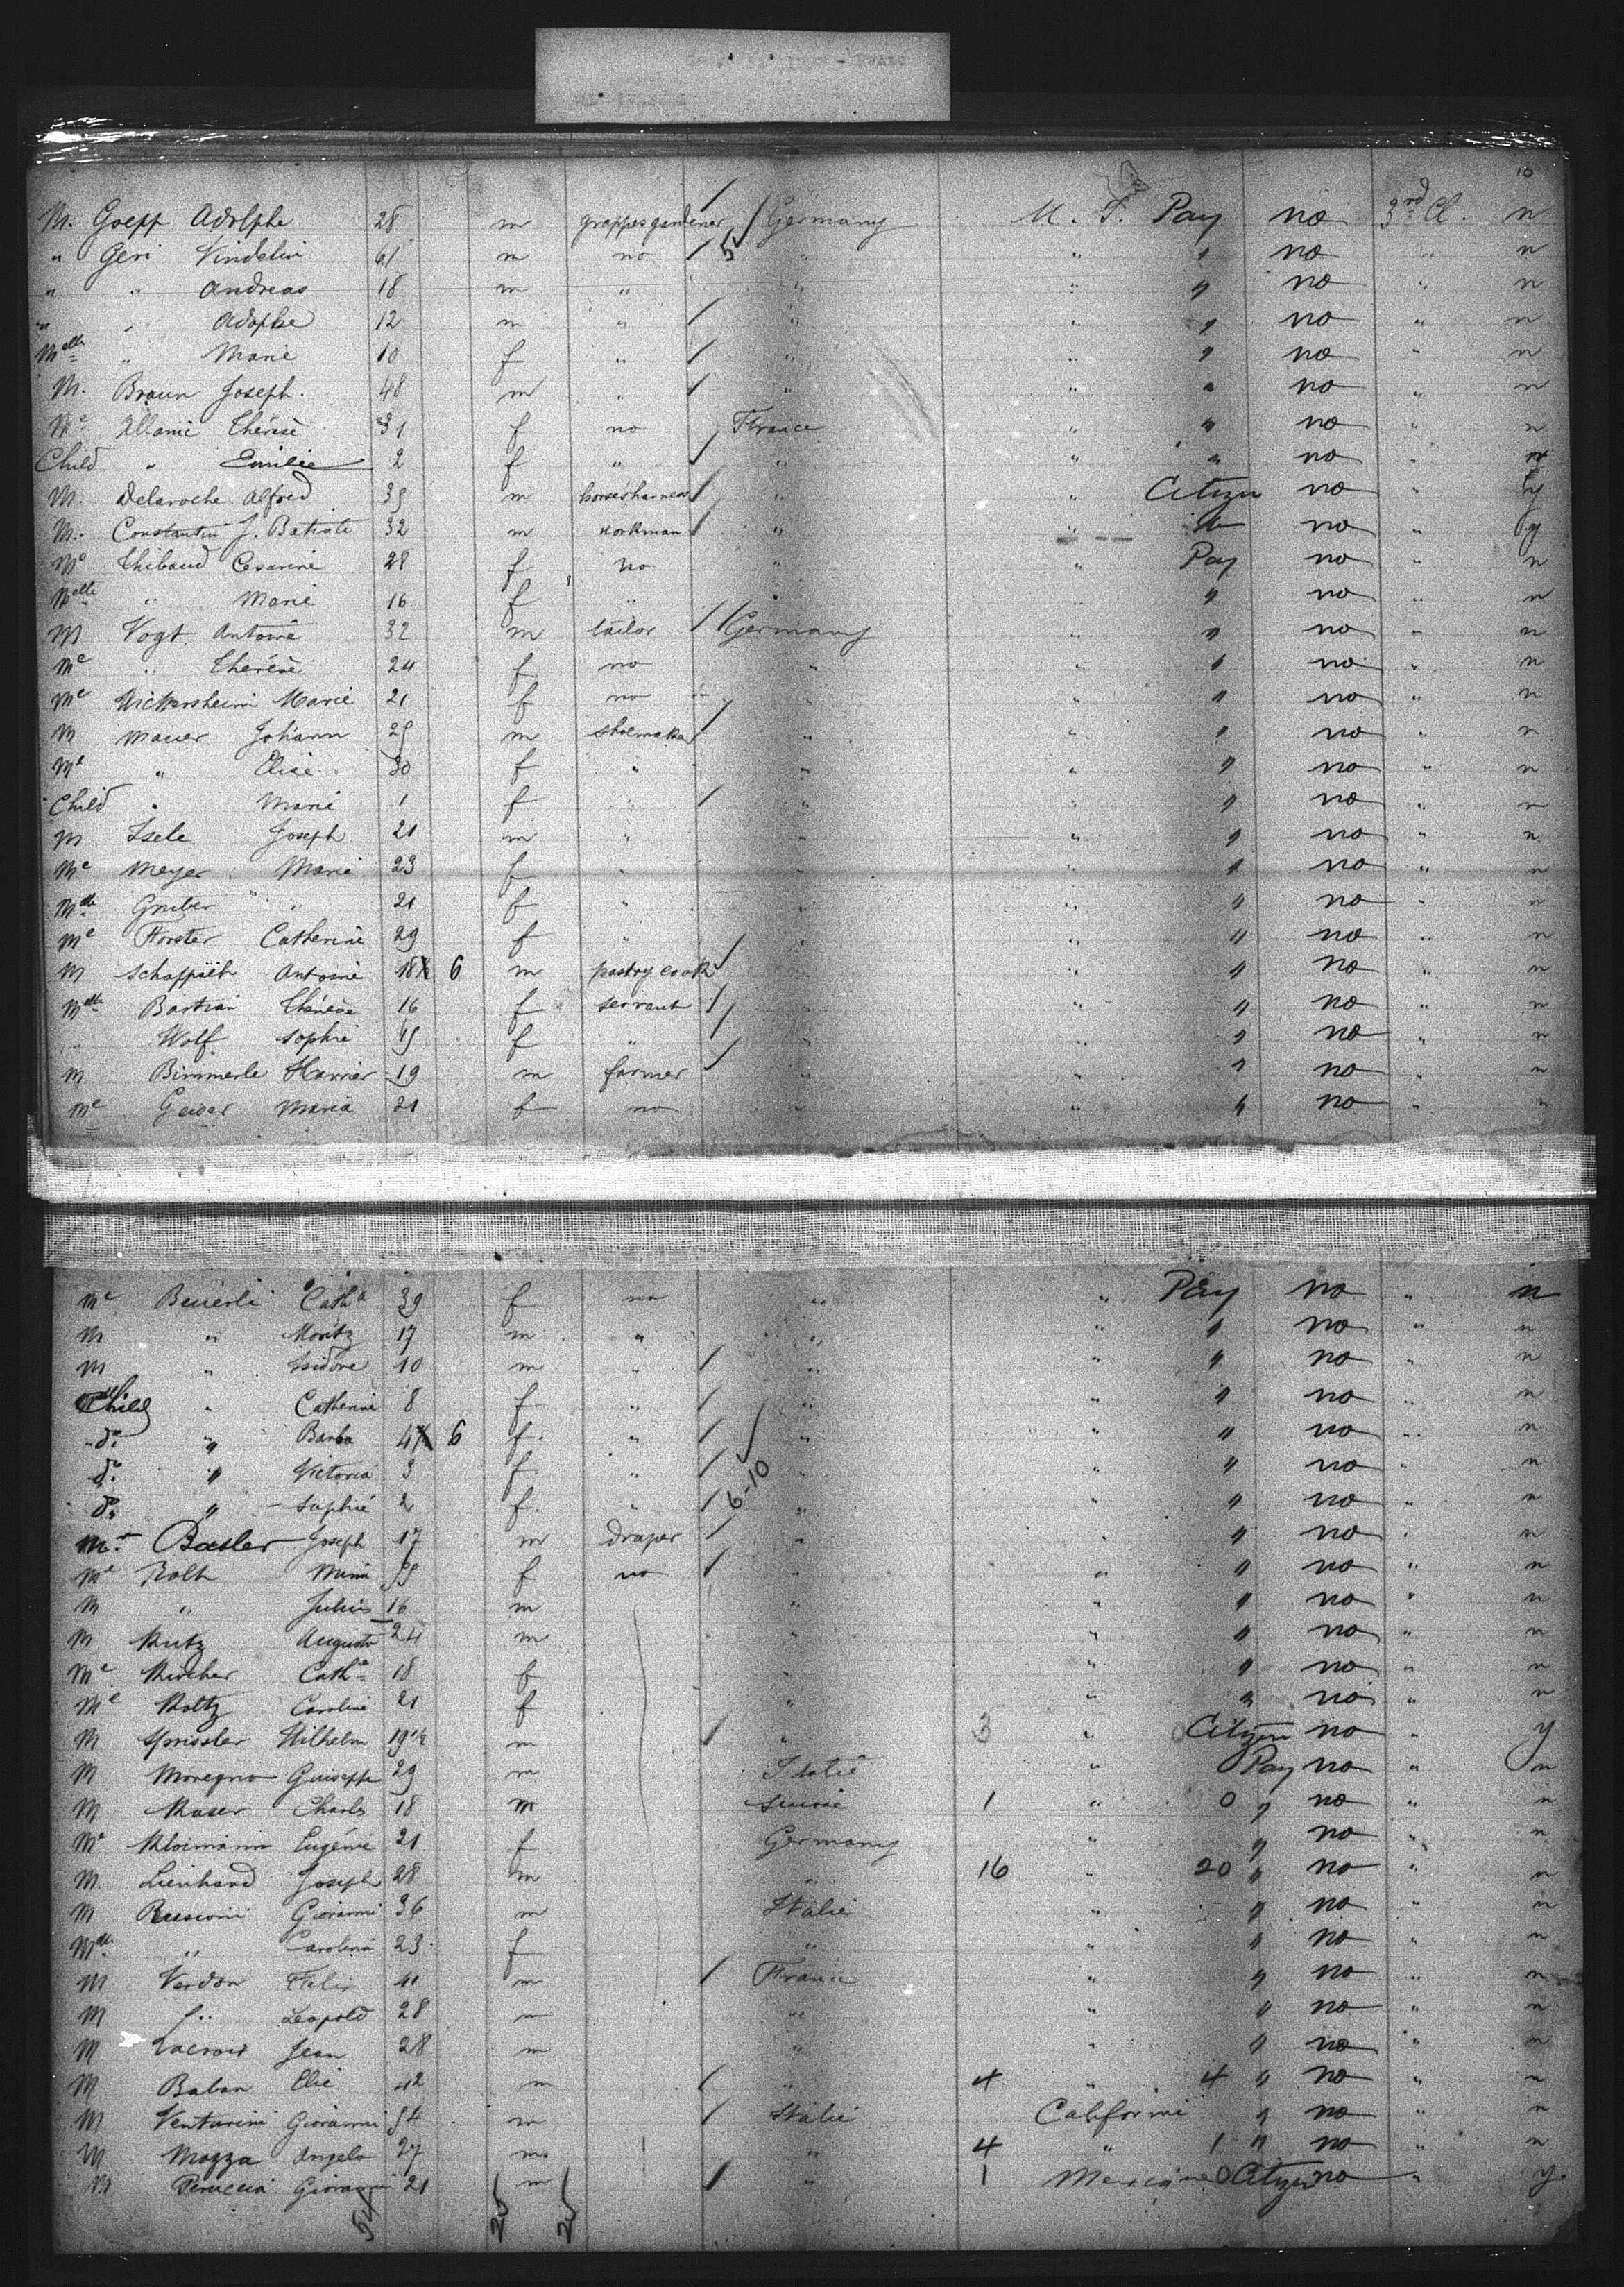 10
M. Goepp Adolphe 28 m grappes gardener / Germany M. F. Pay no 3rd Cl. n
" Geri Vindelin 61 m no / 5 " " " no " n
" " Andreas 18 m " " " " no " n
" " Adolphe 12 m " / " " " no " n
Melle " Marie 10 f " / " " " no " n
M. Braun Joseph. 48 m " / " " " no " n
Me Allanic Thérèse 31 f no France " " no " n
Child " Emilie 2 f " / " " " no " n
M. Delaroche Alfred 35 m horse's harness / " " Citizen no " y
M. Constantin J. Batiste 32 m workman / " " " no " y
Me Thibaud Cesarine 28 f no " " Pay no " n
Melle " Marie 16 f " " " " no " n
M Vogt Antoine 32 m tailor / Germany " " no " n
Me " Thérèse 24 f no " " " no " n
Me Wickersheim Marie 21 f no " " " no " n
M Mauer Johann 25 m shoemaker / " " " no " n
Me " Elise 30 f " " " " no " n
Child " Marie 1 f " / " " " no " n
M Isele Joseph 21 m " " " " no " n
Me Meyer Maria 23 f " " " " no " n
Melle Gruber " 21 f " " " " no " n
Me Forster Catherine 29 f " " " " no " n
M Antoine 18 6 m pastry cook / " " " no " n
Melle Bastian Thérèse 16 f servant / " " " no " n
" Wolf Sophie 15 f " / " " " no " n
M Bimmerle Havier 19 m farmer / " " " no " n
Me Geiger Maria 21 f no " " " no " n
Me Beuerli Catha 39 f no " " Pay no " n
M " Moritz 17 m " " " " no " n
M " Isidore 10 m " / " " " no " n
Child " Catherine 8 f " / " " " no " n
do " Barba 4 6 f " / " " " no " n
do " Victoria 3 f " / 6-10 " " " no " n
do " Sophie 2 f " / " " " no " n
Mr Basler Joseph 17 m draper / " " " no " n
Me Roth 55 f no / " " " no " n
M " Julius 16 m " " " no " n
M Kutz Auguste 24 m " " " no " n
Me Kircher Cathe 18 f " " " no " n
Me Moltz Caroline 21 f " " " no " n
M Sprissler Wilhelm 19 1/2 m / " 3 " Citizen no " y
M Moregno Guiseppe 29 m Italie " Pay no " n
M Moser Charles 18 m Suisse 1 " 0 " no " n
Me Kleimann Eugénie 21 f Germany " " no " n
M. Lienhard Joseph 28 m " 16 " 20 " no " n
M Rusconi Giovanni 36 m Italie " " no " n
Melle " Carolina 23 f " " " no " n
M Verdon Felix 41 m / France " " no " n
M " Leopold 28 m " " " no " n
M Lacroix Jean 28 m " " " no " n
M Baban Elie 42 m / " 4 " 4 " no " n
M Venturini Giovanni 54 m / Italie Californie " no " n
M Mozza Angelo 27 m " 4 " 1 " no " n
M Peruccia Giovanni 21 m / " 1 Mexique 0 Citizen no " y
54